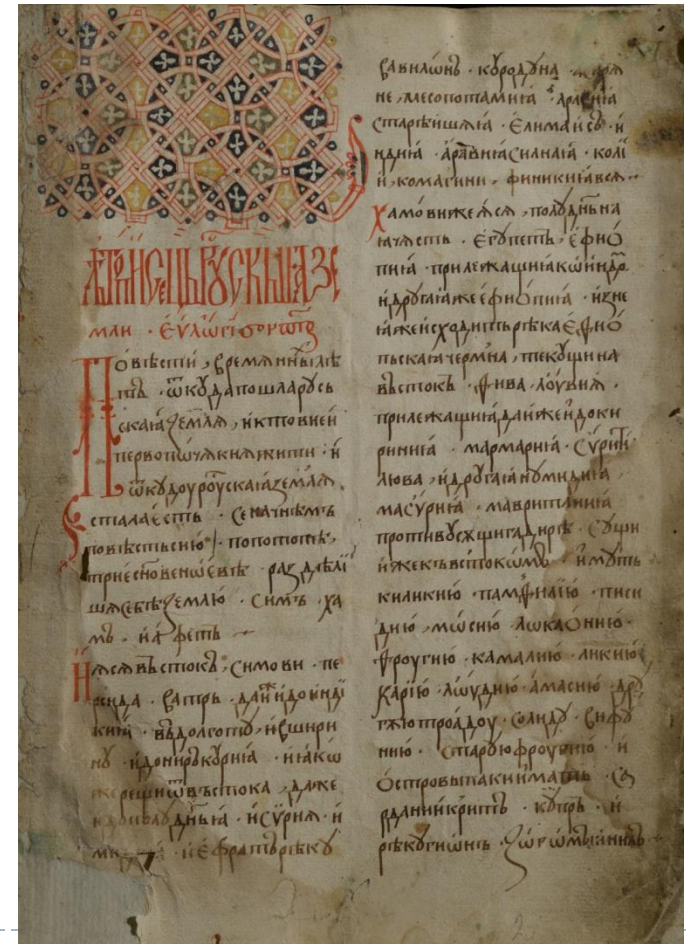 лѣтописець рускыꙗ зе
мли ·
Повѣсти времянныⷯ лѣ
тъ · ѿкуда пошла русь
скаꙗ земля, и кто в неи
первѡ почя княжити · и
ѿкꙋдоу роускаꙗ земля
стала есть · Се начнемъ
повѣсть сию · по потопѣ,
трие сн҃ове ноеве · раздѣли
шя себѣ землю · Симъ · ха
мъ · иꙗфетъ
Ꙗ ся въстокъ · Симови · пе
рсида · ватръ · даж и до инді
киꙗ · въ долготꙋ, и в шири
нꙋ · и до нирокурїа · ꙗкѡ
рещи ѿ въстока, даже
и до полуднѣꙗ · и Сѵрия · и
и Ефратъ рѣкꙋ
вавилѡнъ · кордуна
не, месопотамиꙗ · аравиꙗ
старѣишаꙗ · Елимаись · и
ндиꙗ · аравиꙗ силнаꙗ · колі
и, комагини · финикиꙗ всꙗ
Хамови же ꙗся, полуднѣнa
ꙗ чясть · Егѵпетъ · Ефиѻ
пиꙗ · прилежащиꙗ къ индѡⷨ
и другаꙗ же ефиѻпиꙗ · из не
ꙗ же исходить рѣка Ефиѻ
пьскаꙗ чермна, текущи на
въстокъ · Ѳива · лоувия ·
прилежащиꙗ даже и до ки
риниꙗ · мармариꙗ · Сѵрити
ливоа, и другаꙗ нумидиꙗ ·
масꙋриꙗ · мавританиꙗ
противу сꙋщи гадирѣ · Сущи
и же къ въстокѡмъ · имуть
киликию · памфилию · писи
дию, мѡсию · лѡкаѻнию ·
Фроугию · камалию · ликию
карїю · лидию · амасию · др
гꙋю троадоу · солиду · вифу
нию · старую фроугию · и
Островы таки имать · са
рдании критъ · купръ · и
рѣкꙋ гиѡнъ · зовѡмыи нилъ